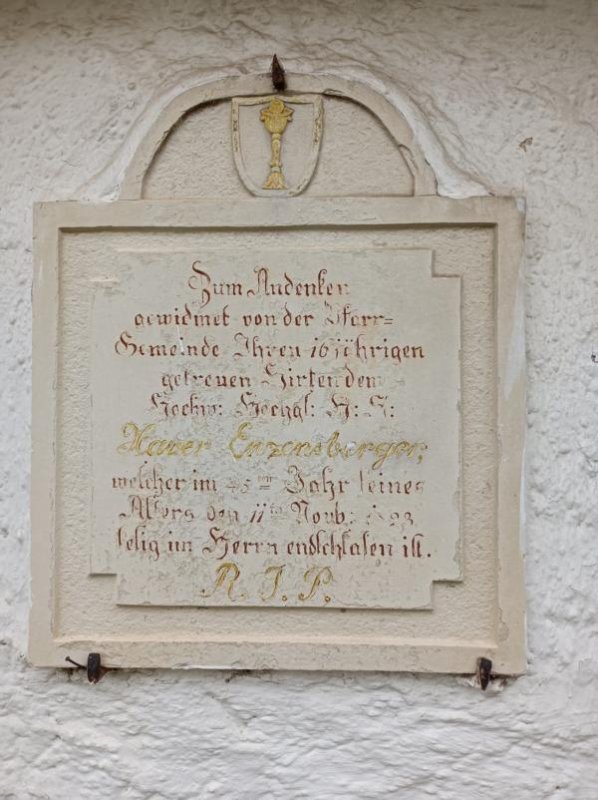 Zum Andenken
gewidmet von der Pfarr=
Gemeinde Ihren 16 jährigen
getreuen Hirten dem
Hochw: Hochgl: H: H:
Xaver Enzensberger;
welcher im 45ten Jahr seines
Alters den 11ten Novb:
selig im Herrn endschlafen ist.
R. I. P.